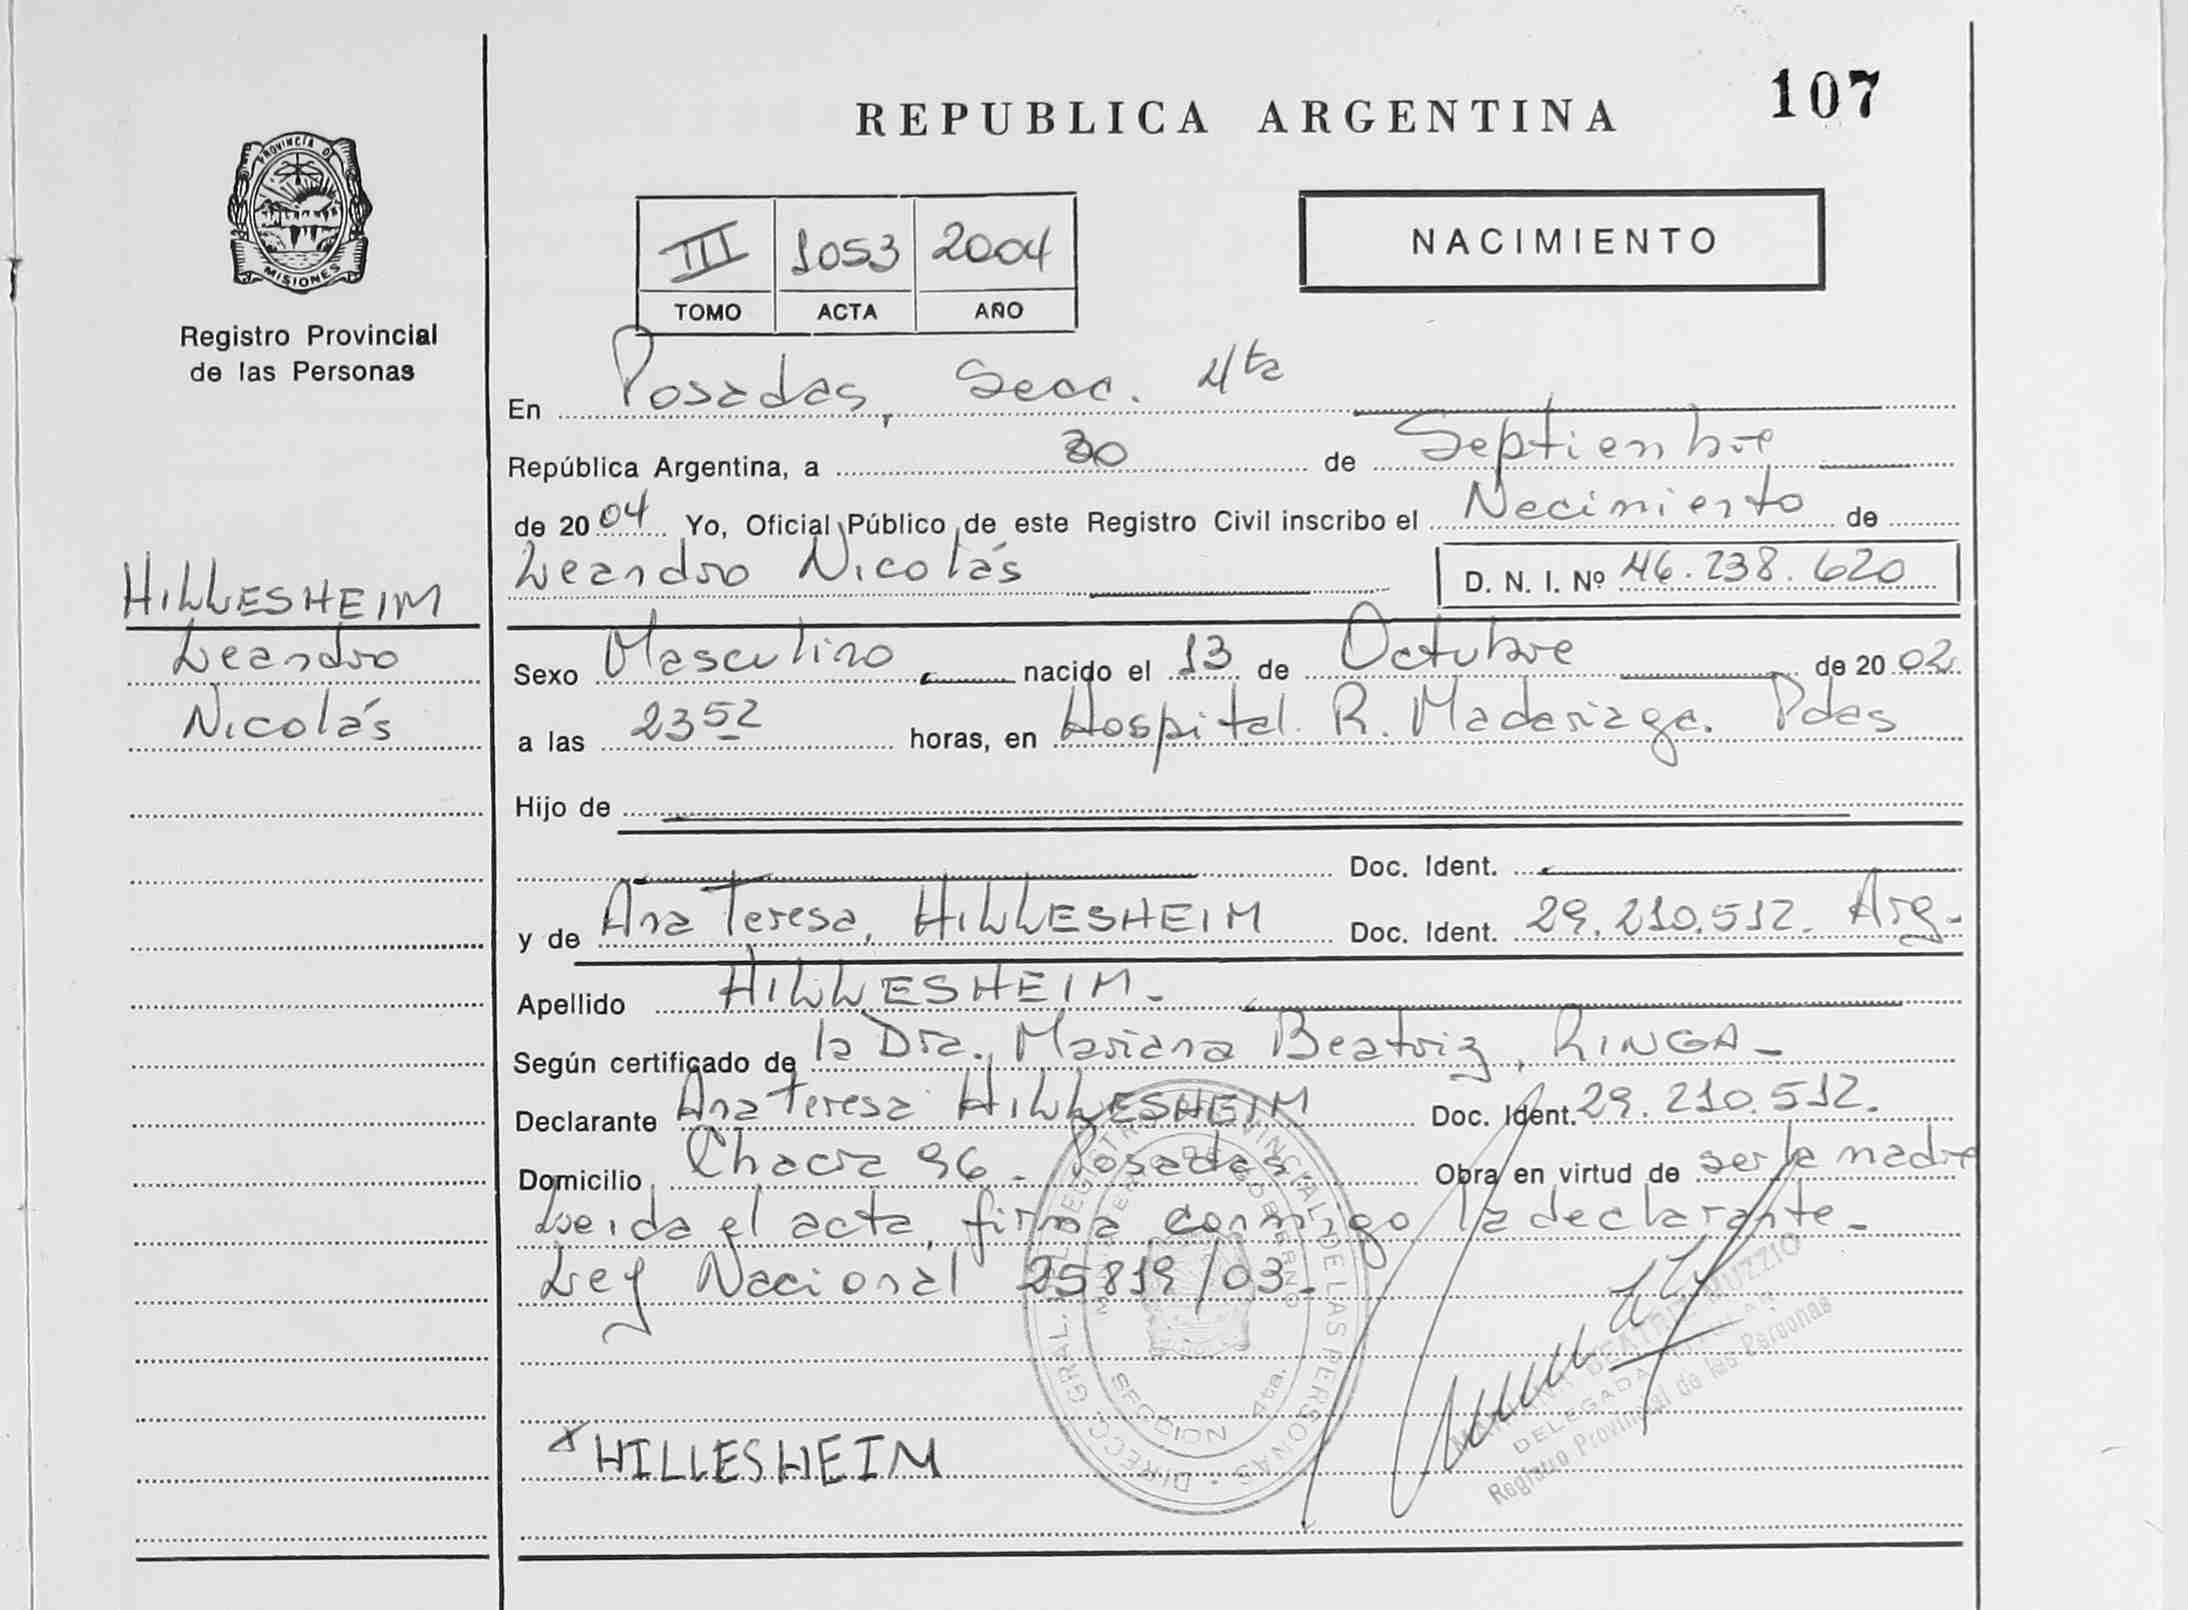 107
REPUBLICA ARGENTINA
PROVINCIA DE
MISIONES
Registro Provincial
de las Personas
III 1053 2004
TOMO ACTA AÑO
NACIMIENTO
En Posadas, Secc. 4ta
República Argentina, a 30 de Septiembre
de 2004 Yo, Oficial Público de este Registro Civil inscribo el Nacimiento de
Leandro Nicolás D. N. I. Nº 46.238.620
HILLESHEIM
Leandro
Nicolás
Sexo Masculino nacido el 13 de Octubre de 2002
a las 23 52 horas, en Hospital R. Madariaga. Pdas
Hijo de
Doc. Ident.
y de Ana Teresa, HILLESHEIM Doc. Ident. 29.210.512. Arg.
Apellido HILLESHEIM.
Según certificado de la Dra. Mariana Beatriz, RINGA
Declarante Ana Teresa HILLESHEIM Doc. Ident. 29.210.512.
Domicilio Chacra 96 - Posadas. Obra en virtud de ser la madre
Leida el acta, firma conmigo la declarante.
Ley Nacional 25819/03.
DIRECC. GRAL. DEL REGISTRO PROVINCIAL DE LAS PERSONAS
MINISTERIO DE GOBIERNO
SECCION 4ta.
BEATRIZ MUZZIO
DELEGADA TITULAR
Registro Provincial de las Personas
x HILLESHEIM